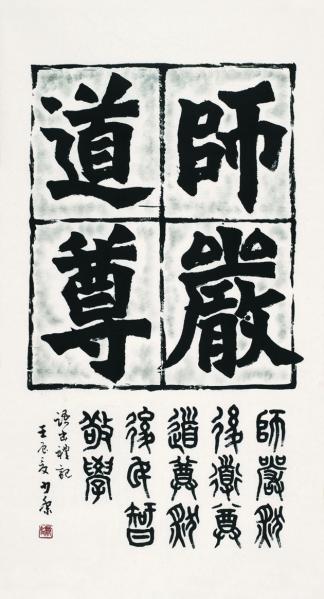 師嚴
道尊
師嚴然
後道尊
道尊然
後民智
敬學
語出禮記
壬辰夏